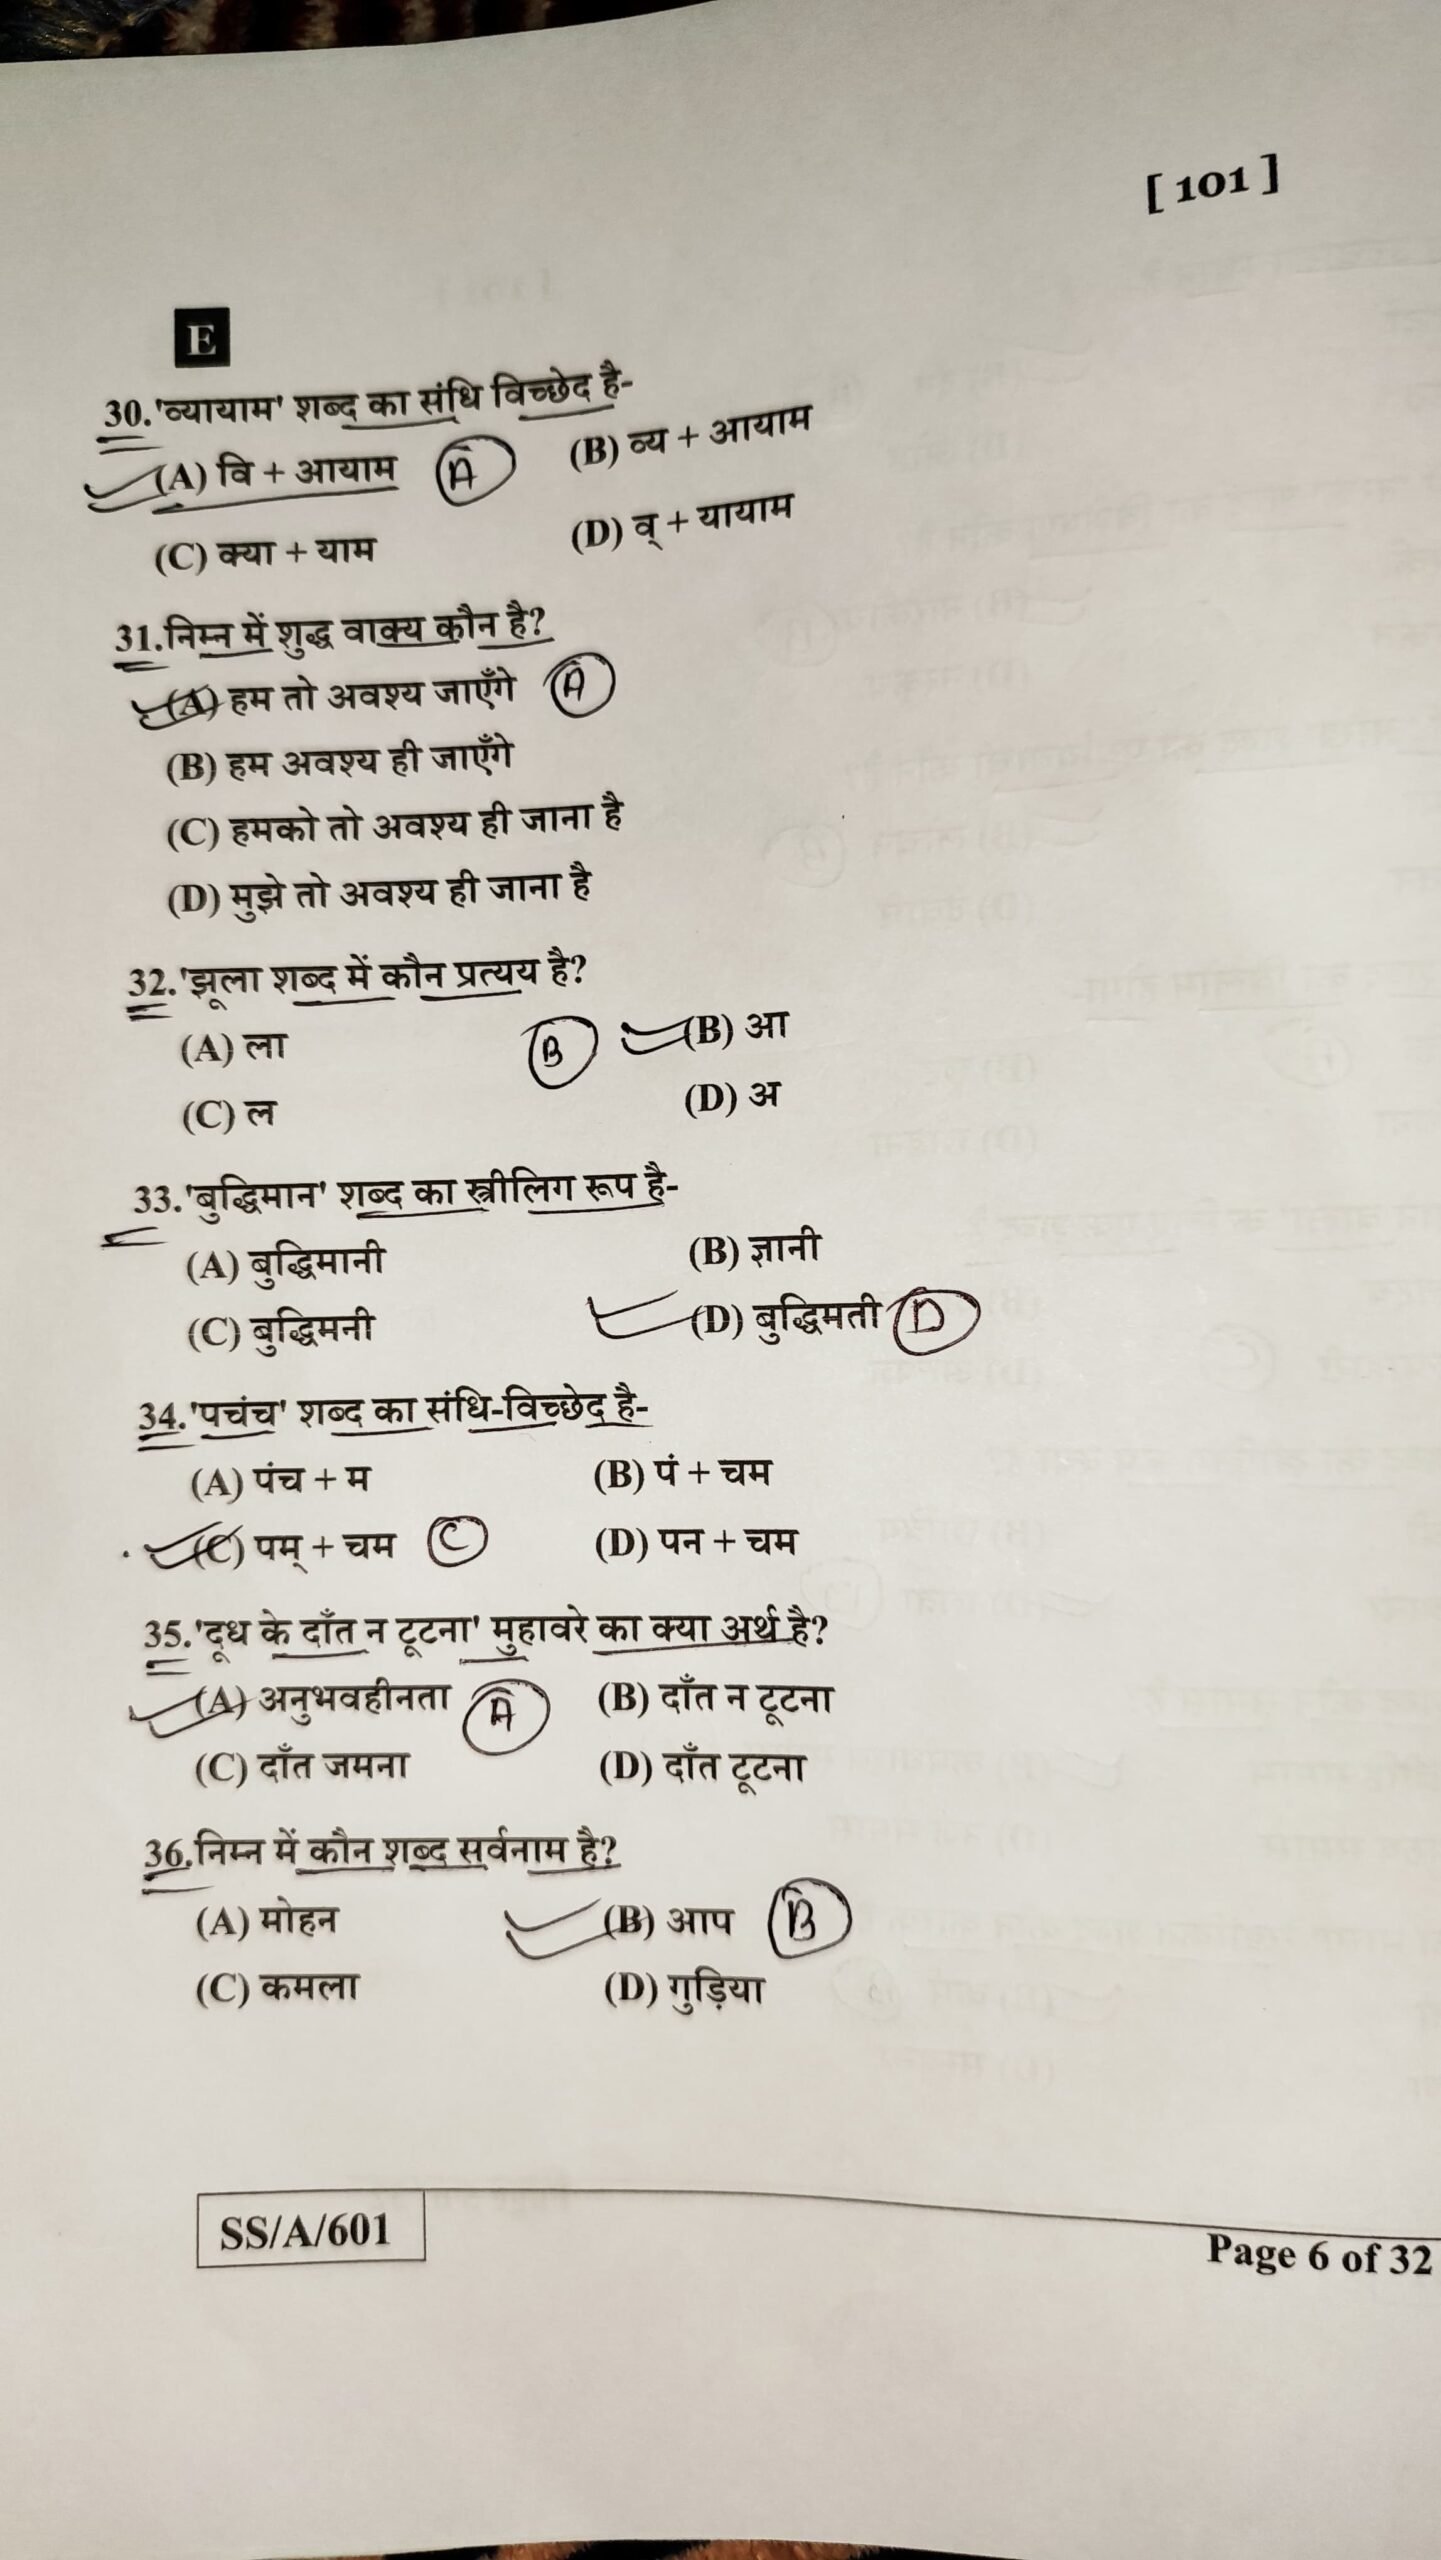 [ 101 ]
E
30.'व्यायाम' शब्द का संधि विच्छेद है-
(A) वि + आयाम A (B) व्य + आयाम
(C) क्या + याम (D) व् + यायाम
31.निम्न में शुद्ध वाक्य कौन है?
(A) हम तो अवश्य जाएँगे A
(B) हम अवश्य ही जाएँगे
(C) हमको तो अवश्य ही जाना है
(D) मुझे तो अवश्य ही जाना है
32.'झूला शब्द में कौन प्रत्यय है?
(A) ला B (B) आ
(C) ल (D) अ
33.'बुद्धिमान' शब्द का स्त्रीलिग रूप है-
(A) बुद्धिमानी (B) ज्ञानी
(C) बुद्धिमनी (D) बुद्धिमती D
34.'पचंच' शब्द का संधि-विच्छेद है-
(A) पंच + म (B) पं + चम
(C) पम् + चम C (D) पन + चम
35.'दूध के दाँत न टूटना' मुहावरे का क्या अर्थ है?
(A) अनुभवहीनता A (B) दाँत न टूटना
(C) दाँत जमना (D) दाँत टूटना
36.निम्न में कौन शब्द सर्वनाम है?
(A) मोहन (B) आप B
(C) कमला (D) गुड़िया
SS/A/601
Page 6 of 32